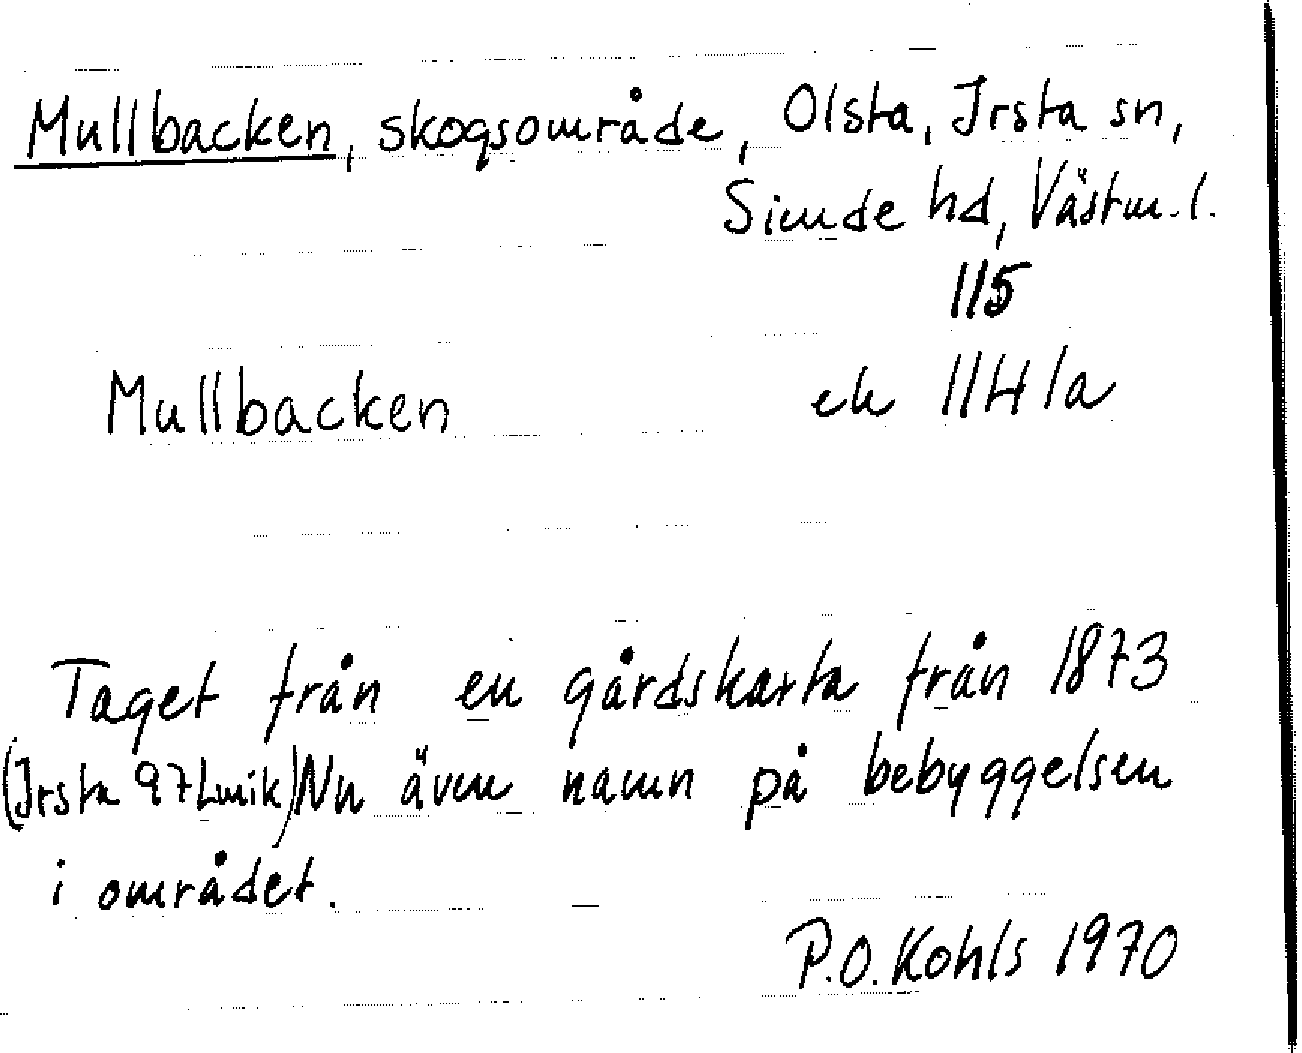 Mullbacken, skogsområde, Olsta, Irsta sn,
Simde hd, Västm.l.
115
Mullbacken ek 11H 1a
Taget från en gårdskarta från 1873
(Irsta 97 Lmk) Nu även namn på bebyggelsen
i området.
P.O. Kohls 1970